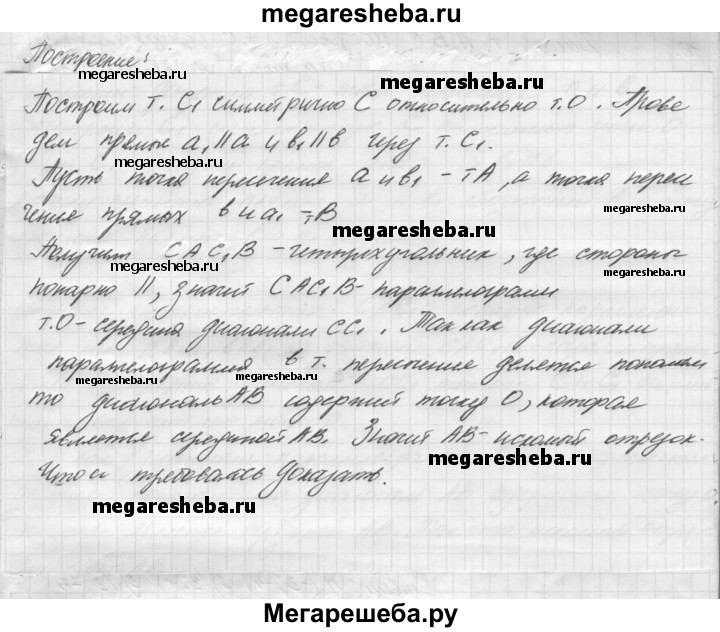 megaresheba.ru
Построение:
megaresheba.ru
megaresheba.ru
Построим т. C₁ симметрично C относительно т.O. Прове
дем прямые a₁ ∥ a и в₁ ∥ в через т. C₁.
megaresheba.ru
megaresheba.ru
Пусть точка пересечения a и в₁ - т A, а точка пересе
чение прямых в и a₁ - т B
megaresheba.ru
megaresheba.ru
Получим CAC₁B - четырехугольник, где стороны
megaresheba.ru
megaresheba.ru
попарно ∥, значит CAC₁B - параллелограмм
т.O - середина диагонали CC₁. Так как диагонали
параллелограмма в т. пересечение делятся пополам
megaresheba.ru
megaresheba.ru
megaresheba.ru
то диагональ AB содержит точку O, которая
является серединой AB. Значит AB - искомый отрезок.
megaresheba.ru
Что и требовалось доказать.
megaresheba.ru
Мегарешеба.ру